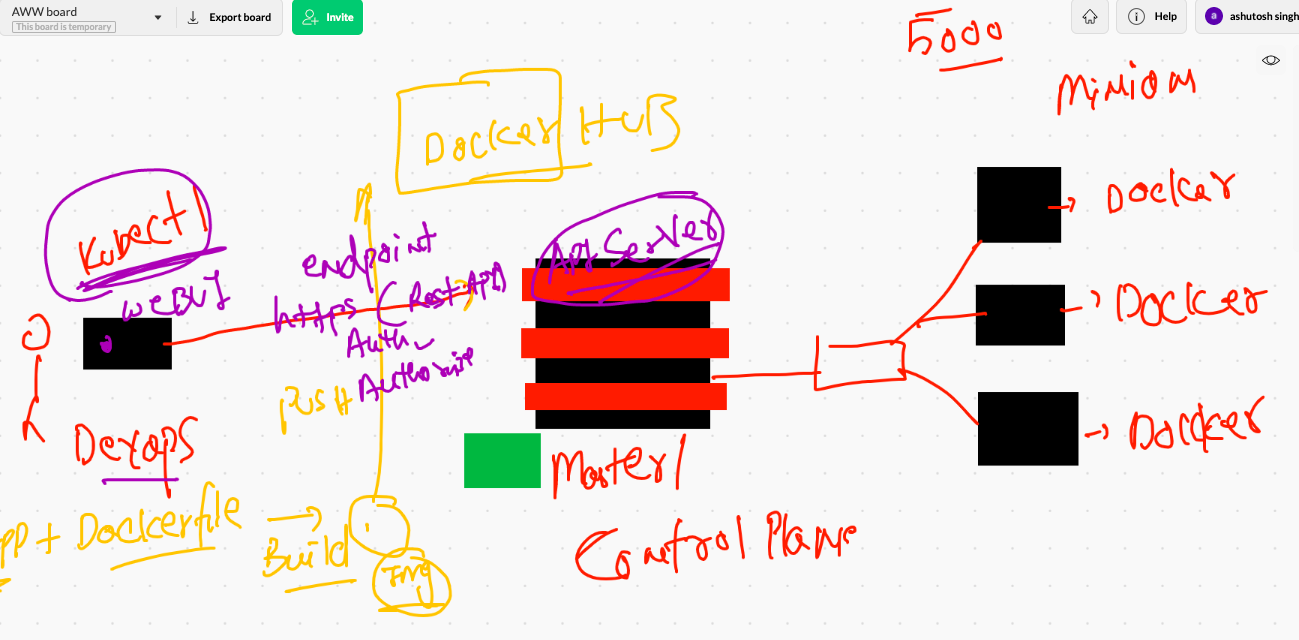 AWW board
This board is temporary
Export board
Invite
Help
a
ashutosh singh
5000
Minion
Docker HUB
Kubectl
WEBUI
endpoint
https (Rest API)
Auth
API Server
Docker
Docker
Docker
PUSH
Devops
Master
Control Plane
PP + Dockerfile
Build
Img